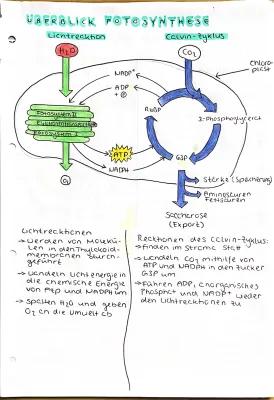 ÜBERBLICK FOTOSYNTHESE
Lichtreaktion
Calvin-Zyklus
H2O
CO2
Chloroplast
NADP+
ADP
+ P
RuBP
3-Phosphoglycerat
Fotosystem II
Elektronentransportkette
Fotosystem I
ATP
NADPH
G3P
O2
Stärke (Speicherung)
Aminosäuren
Fettsäuren
Saccharose
(Export)
Lichtreaktionen
→ werden von Molekü-
len in den Thylakoid-
membranen durch-
geführt
→ wandeln Lichtenergie in
die chemische Energie
von ATP und NADPH um
→ spalten H2O und geben
O2 an die Umwelt ab
Reaktionen des Calvin-Zyklus:
→ finden im Stroma statt
→ wandeln CO2 mithilfe von
ATP und NADPH in den Zucker
G3P um
→ führen ADP, anorganisches
Phosphat und NADP+ wieder
den Lichtreaktionen zu